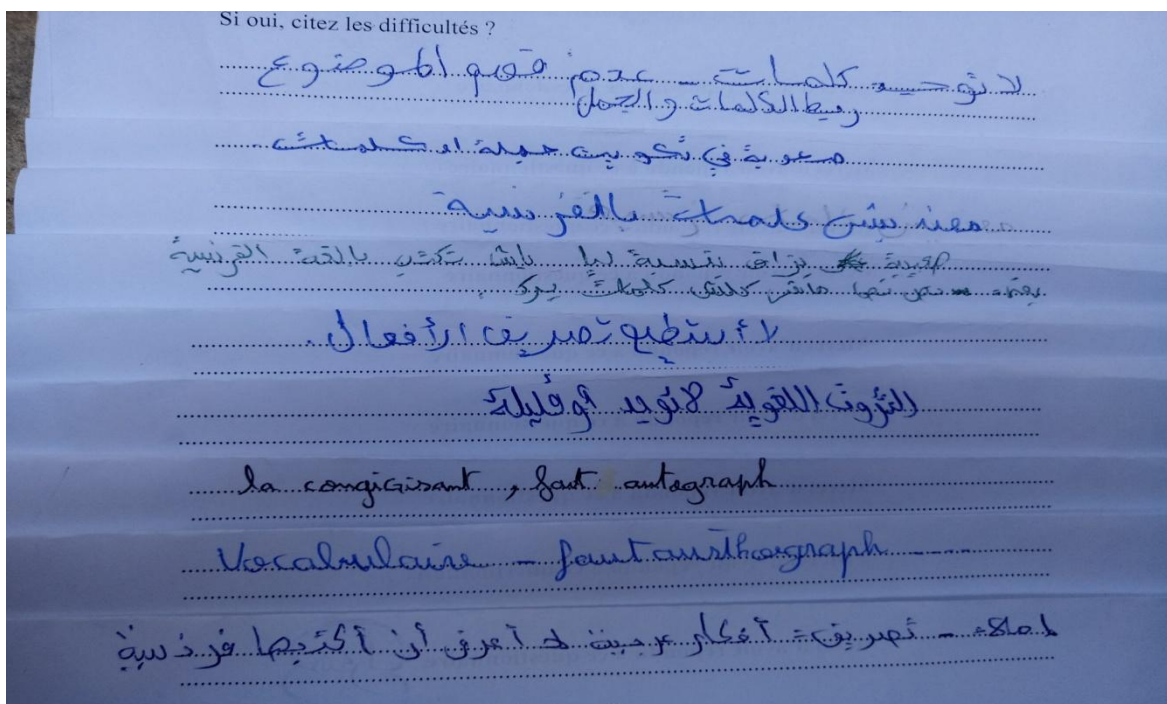 Si oui, citez les difficultés ?
لا توجد كلمات - عدم فهم الموضوع
ربط الكلمات والجمل
صعوبة في تكوين جملة او كلمات
معنديش كلمات بالفرنسية
بزاف بنسبة ليا باش نكتب بالغة الفرنسية
كلمات
لا أستطيع تصريف الأفعال.
الثروت اللغوية لا توجد أو قليلة
la congigisant, faut autograph
Vocabulaire - faut austhorgraph
املاء - تصريف = أفكار عربية لا أعرف أن أكتبها فرنسية